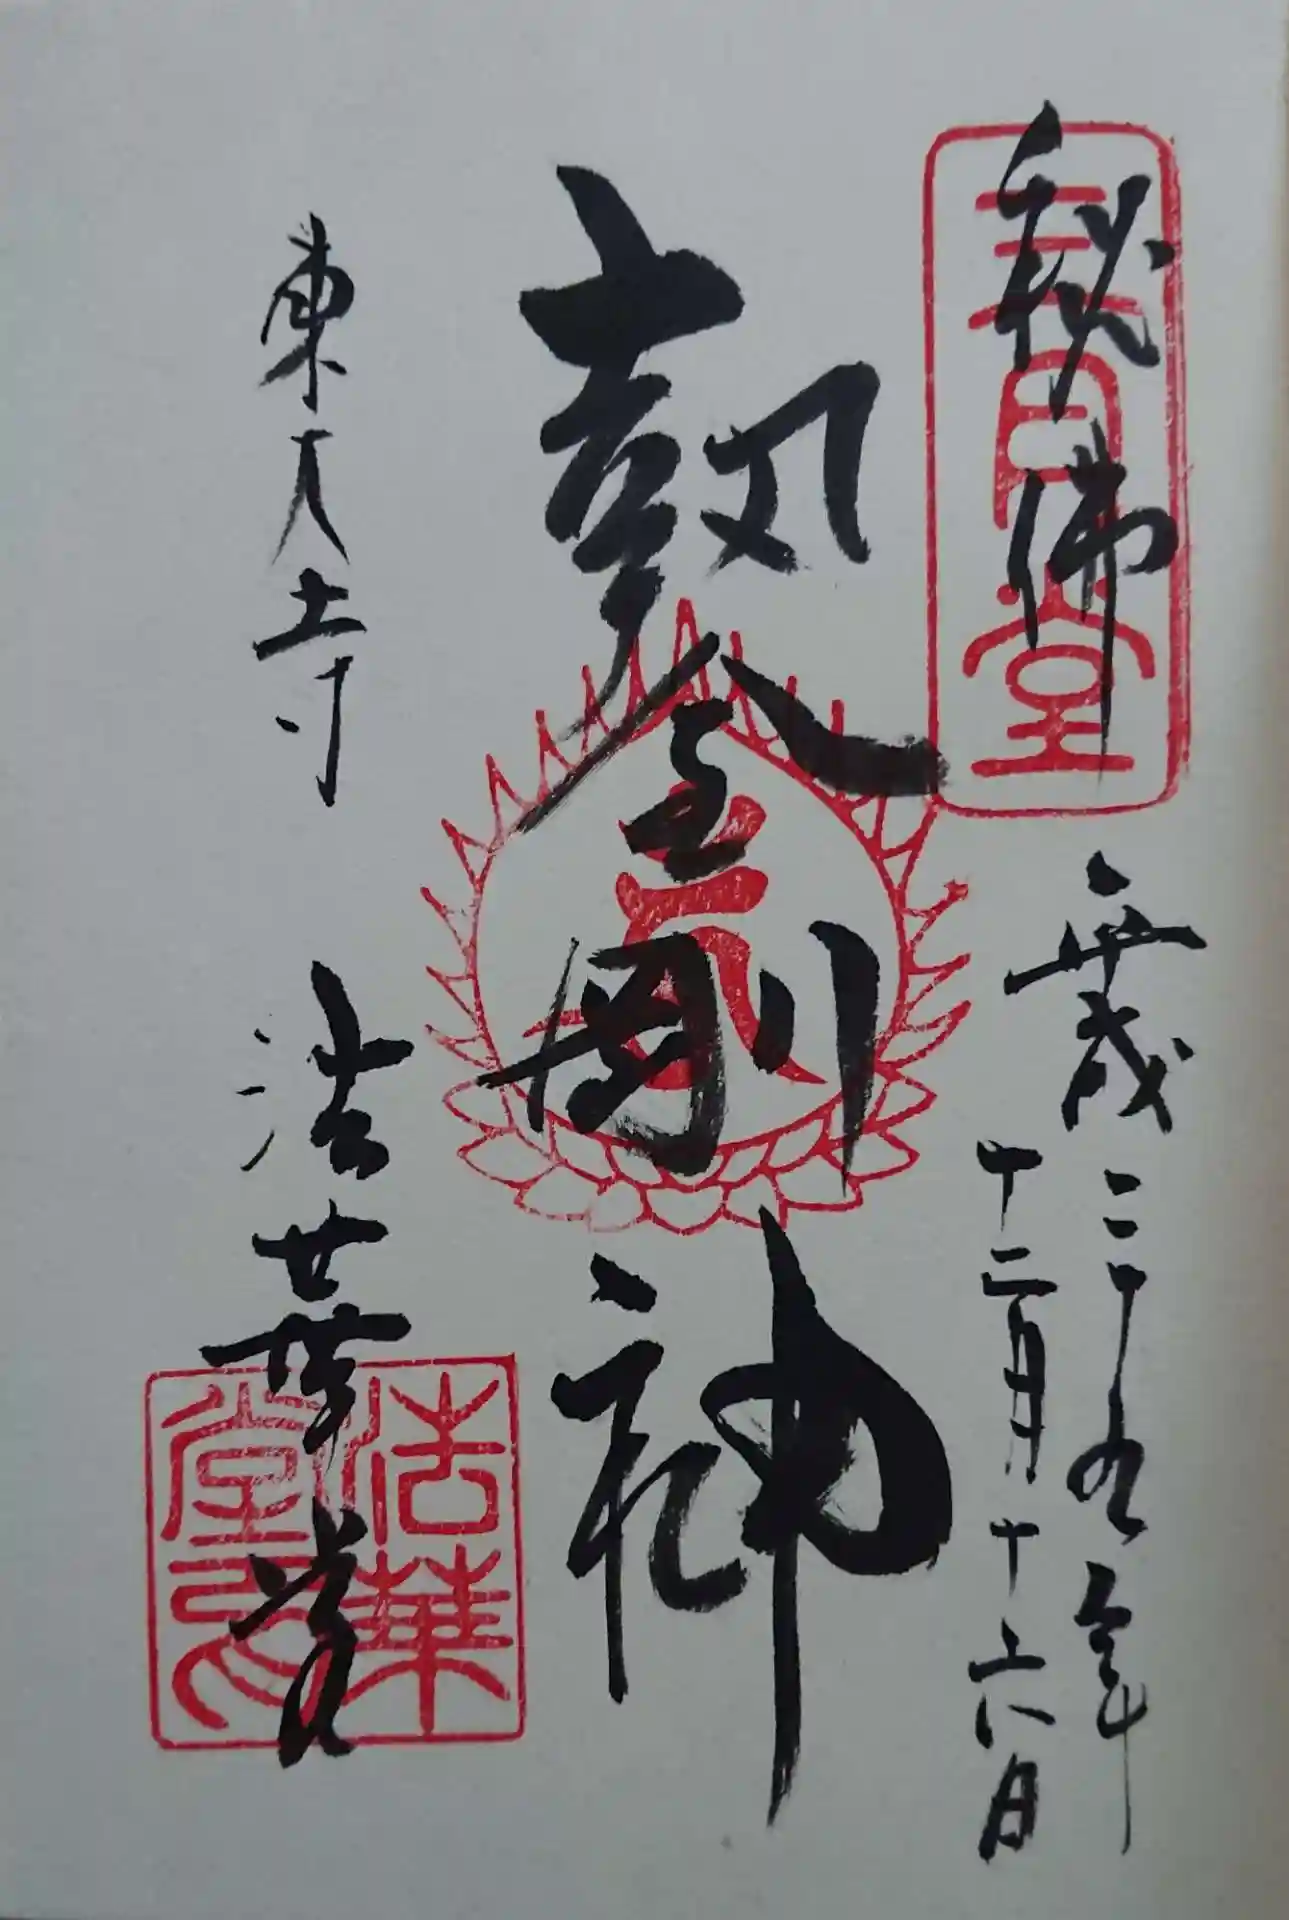 三月堂
秘佛
平成二十九年
十二月十六日
執金剛神
東大寺
法華堂
法華
堂印